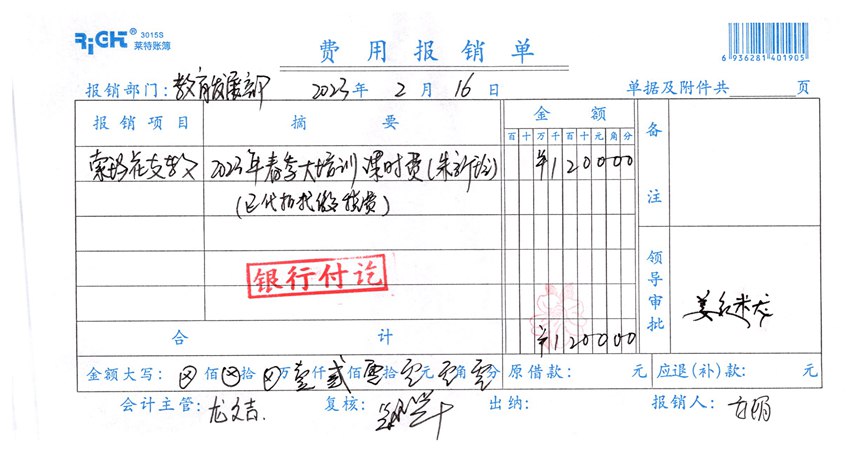 RiCHT® 3015S
莱特账簿
费用报销单
6 936281 401905
报销部门: 教育发展部 2023年 2月 16日 单据及附件共 页
报销项目 摘要 金额 备注
百 十 万 千 百 十 元 角 分
索玛花支教 2023年春季大培训课时费(朱新) ¥120000
(已代扣代缴税费)
银行付讫
领导审批
合计 ¥120000
金额大写: ⊗佰⊗拾⊗万壹仟贰佰零拾零元零角零分 原借款: 元 应退(补)款: 元
会计主管: 龙文吉 复核: 出纳: 报销人: